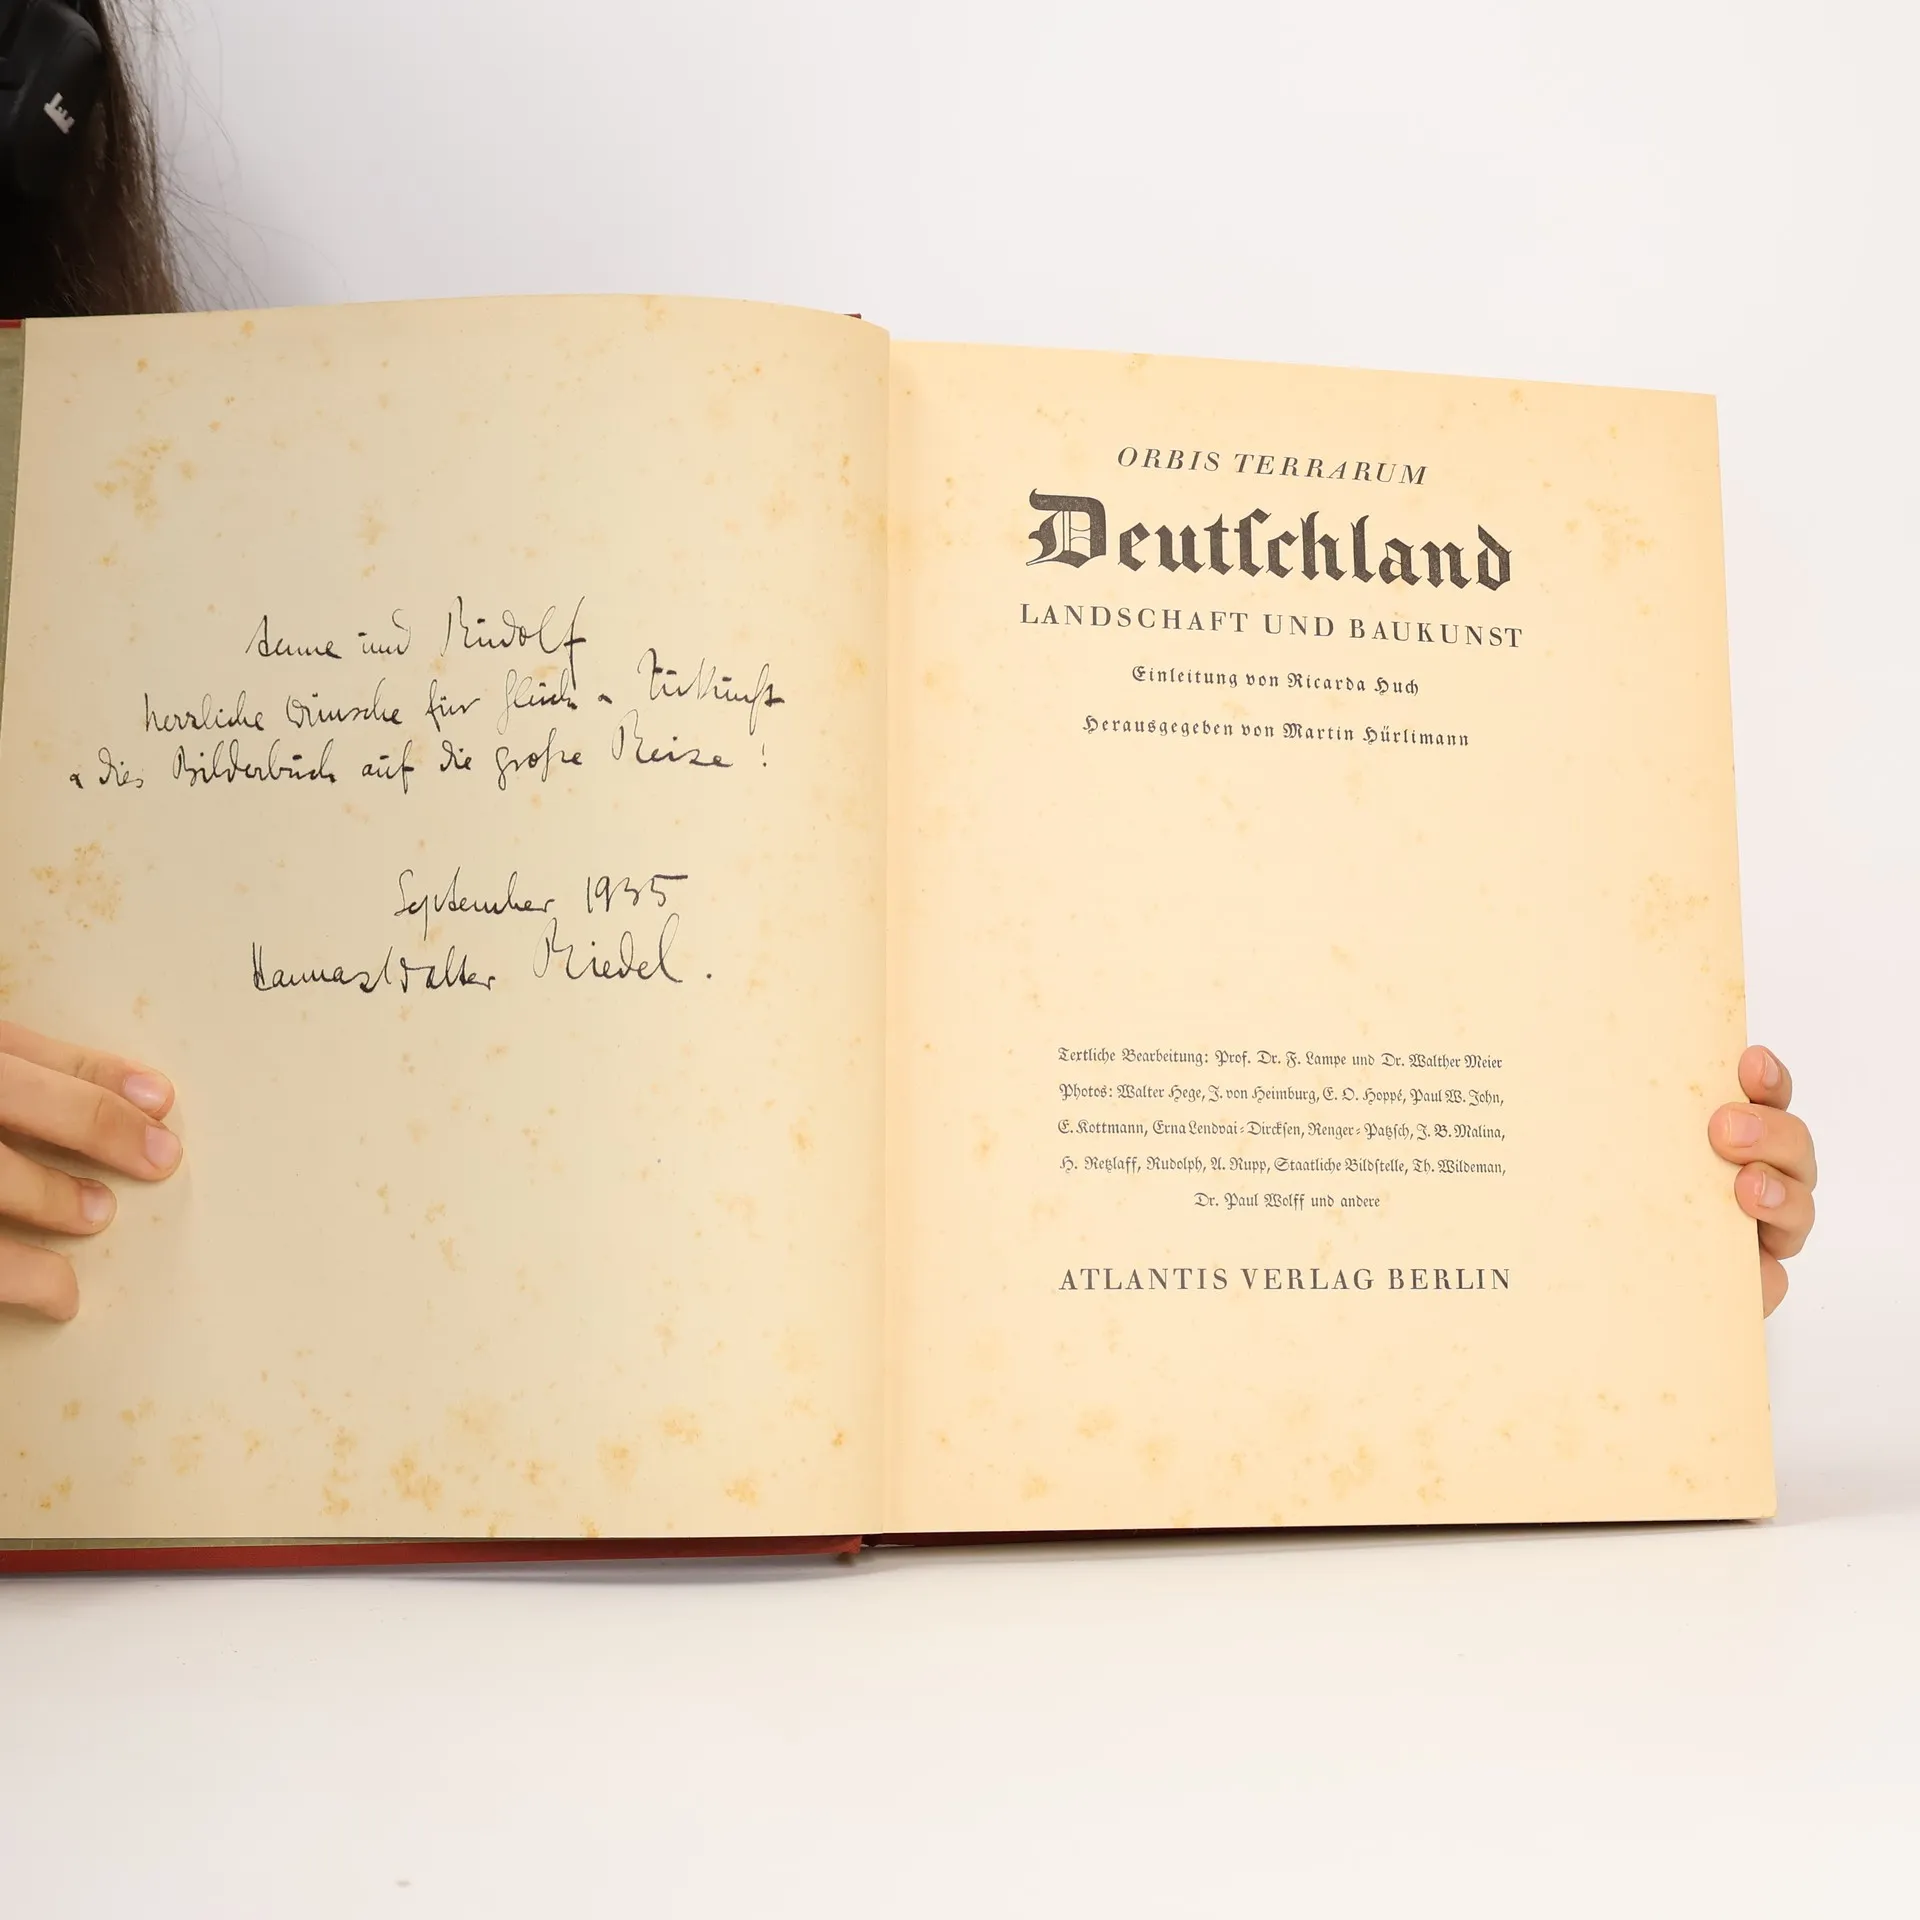 und Rudolf
herzliche Wünsche für Glück & Zukunft
& dies Bilderbuch auf die große Reise!
September 1935
Riedel.
ORBIS TERRARUM
Deutſchland
LANDSCHAFT UND BAUKUNST
Einleitung von Ricarda Huch
Herausgegeben von Martin Hürlimann
Textliche Bearbeitung: Prof. Dr. F. Lampe und Dr. Walther Meier
Photos: Walter Hege, J. von Heimburg, E. O. Hoppé, Paul W. John,
E. Kottmann, Erna Lendvai-Dirckſen, Renger-Patzſch, J. B. Malina,
H. Retzlaff, Rudolph, A. Rupp, Staatliche Bildſtelle, Th. Wildeman,
Dr. Paul Wolff und andere
ATLANTIS VERLAG BERLIN